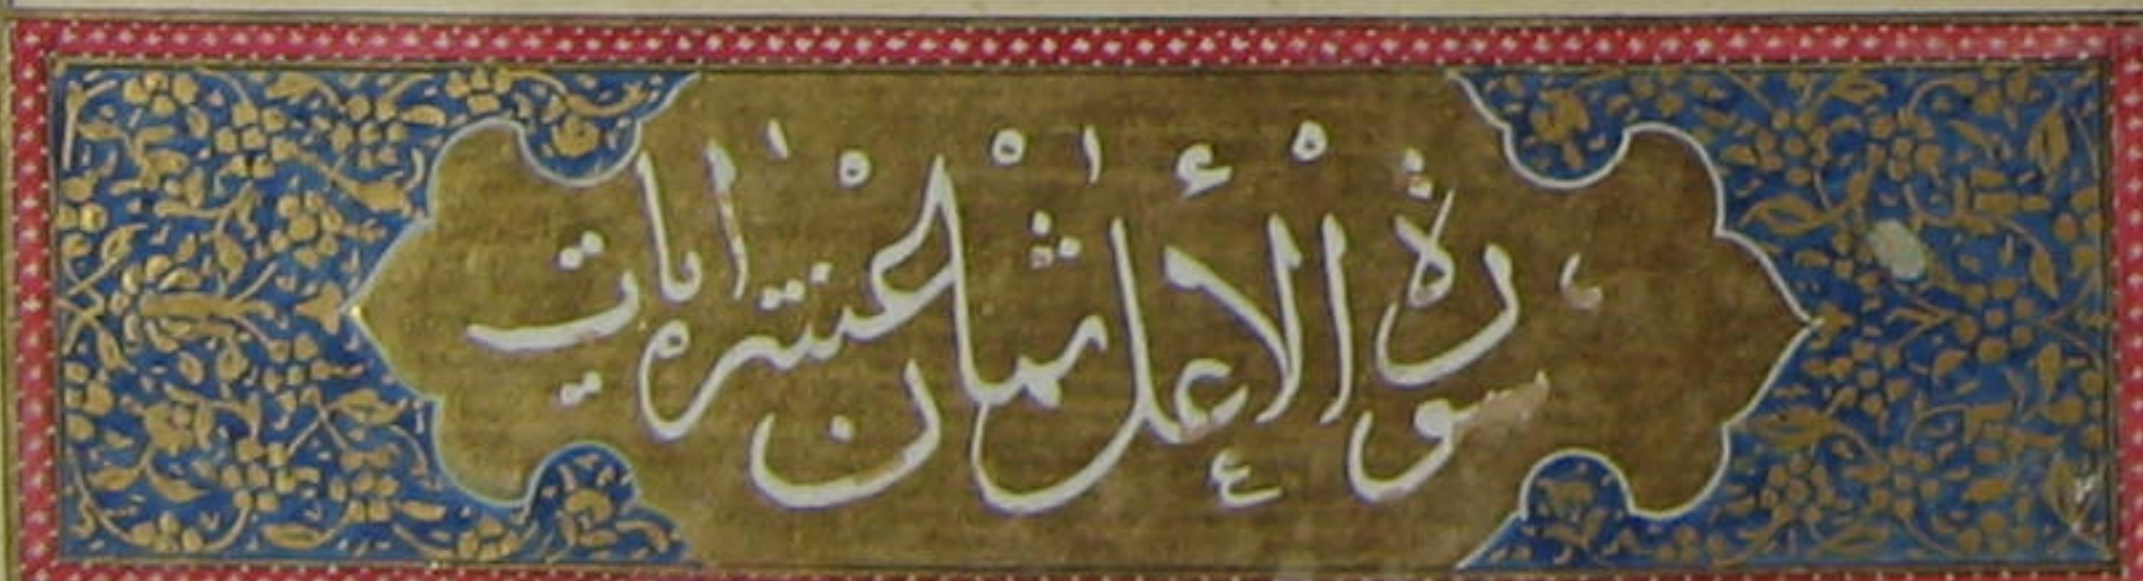 سورة الأعلى ثمان عشر آيات